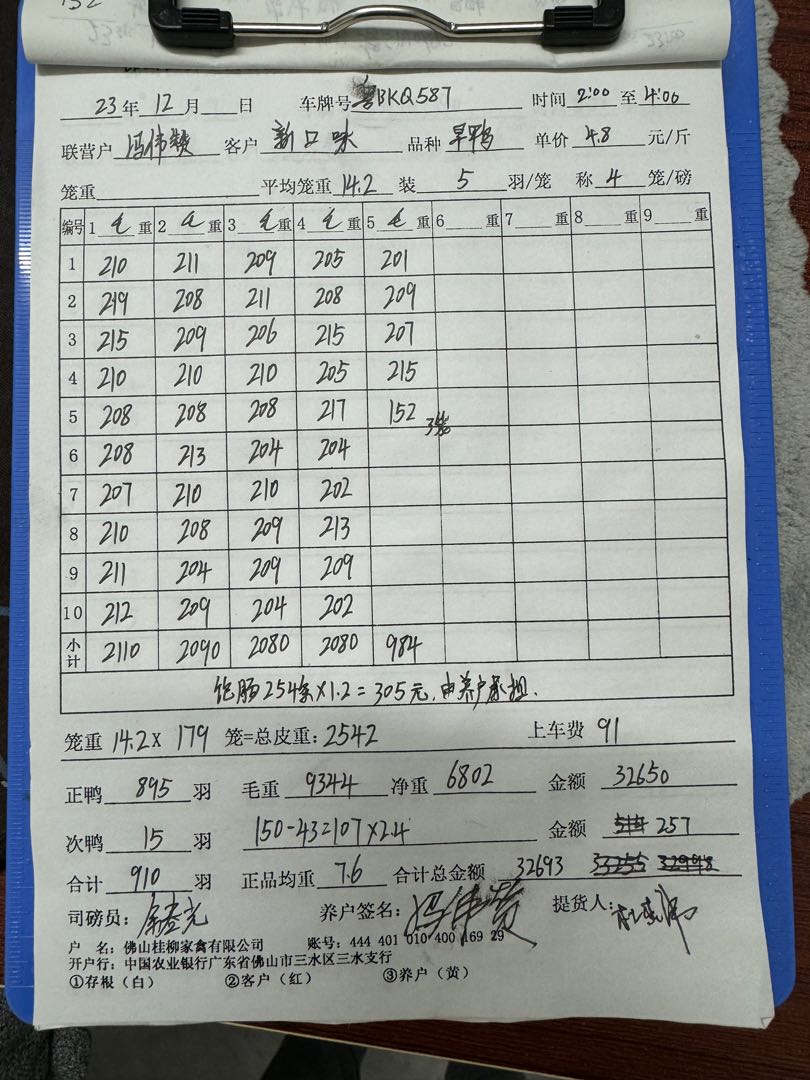 23年12月 日 车牌号 粤BKQ587 时间 2:00 至 4:00
联营户 冯伟赞 客户 新口味 品种 旱鸭 单价 4.8 元/斤
笼重 平均笼重 14.2 装 5 羽/笼 称 4 笼/磅
编号 1 毛 重 2 毛 重 3 毛 重 4 毛 重 5 毛 重 6 重 7 重 8 重 9 重
1 210 211 209 205 201
2 219 208 211 208 209
3 215 209 206 215 207
4 210 210 210 205 215
5 208 208 208 217 152 3笼
6 208 213 204 204
7 207 210 210 202
8 210 208 209 213
9 211 204 209 209
10 212 209 204 202
小计 2110 2090 2080 2080 984
饱肠254条×1.2=305元,由养户承担.
笼重 14.2× 179 笼=总皮重:2542 上车费 91
正鸭 895 羽 毛重 9344 净重 6802 金额 32650
次鸭 15 羽 150-43=107×2.4 金额 514 257
合计 910 羽 正品均重 7.6 合计总金额 32693 33255 32998
司磅员: 养户签名:冯伟赞 提货人:
户 名:佛山桂柳家禽有限公司 账号:444 401 010 400 169 29
开户行:中国农业银行广东省佛山市三水区三水支行
①存根(白) ②客户(红) ③养户(黄)